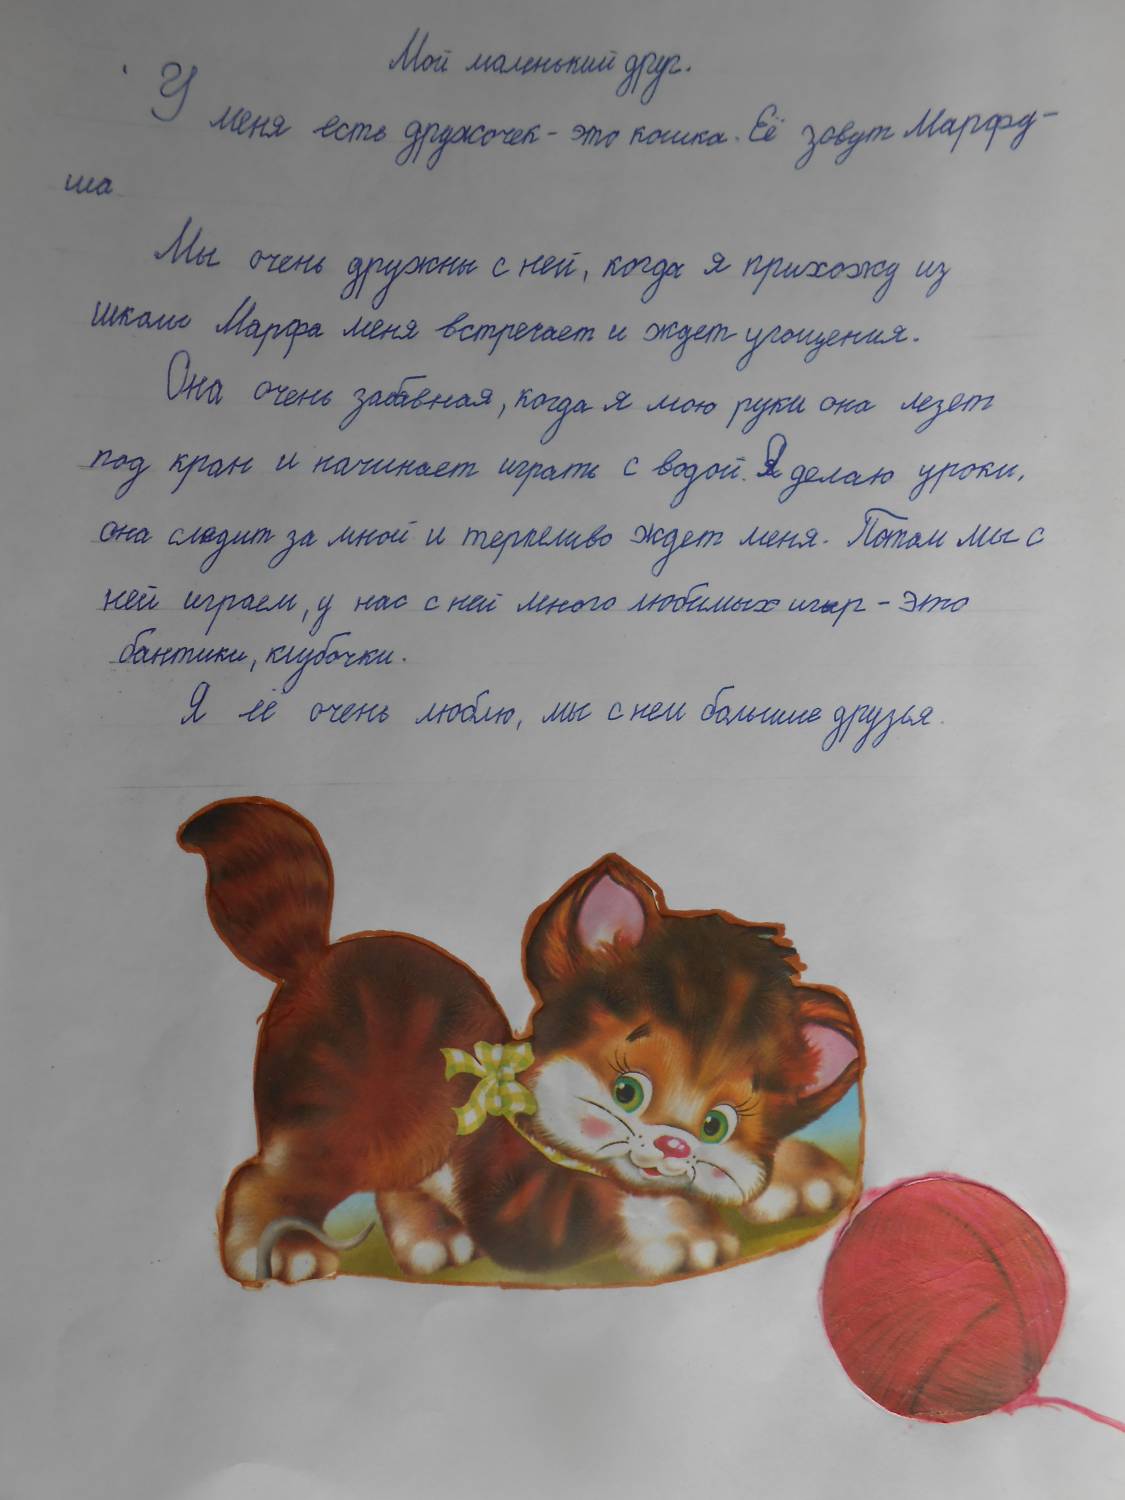 Мой маленький друг.
У меня есть дружочек - это кошка. Её зовут Марфу-
ша
Мы очень дружны с ней, когда я прихожу из
школы Марфа меня встречает и ждет угощения.
Она очень забавная, когда я мою руки она лезет
под кран и начинает играть с водой. Я делаю уроки,
она следит за мной и терпеливо ждет меня. Потом мы с
ней играем, у нас с ней много любимых игр - это
бантики, клубочки.
Я её очень люблю, мы с ней большие друзья.